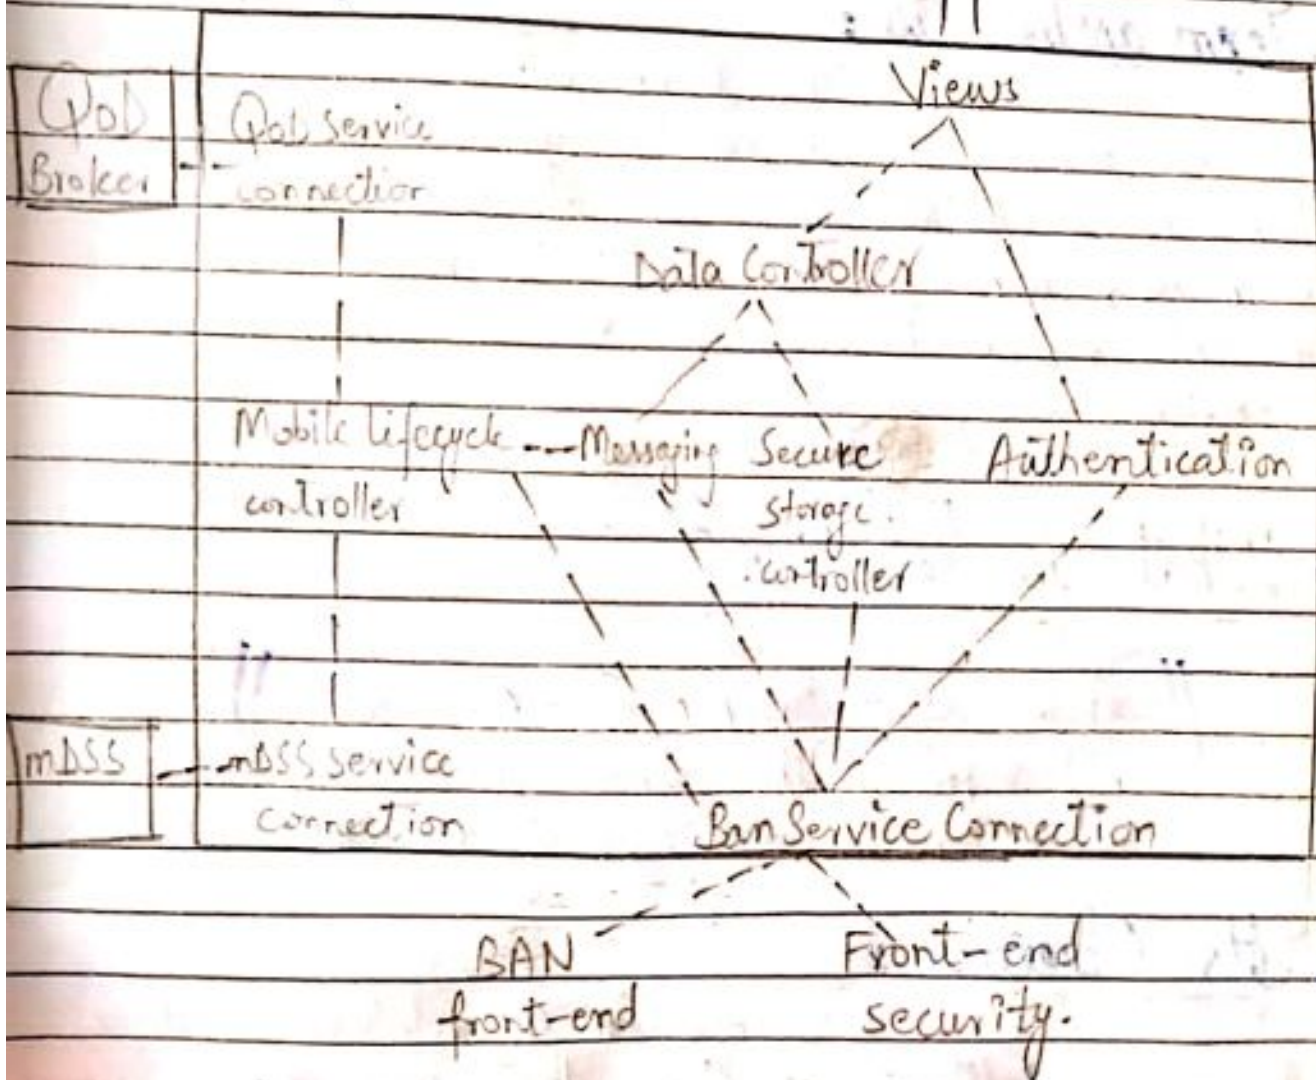 Views
QoD
Broker
QoD service
connection
Data Controller
Mobile Lifecycle
controller
Messaging
Secure
storage
controller
Authentication
mDSS
mDSS service
connection
Ban Service Connection
BAN
front-end
Front-end
security.